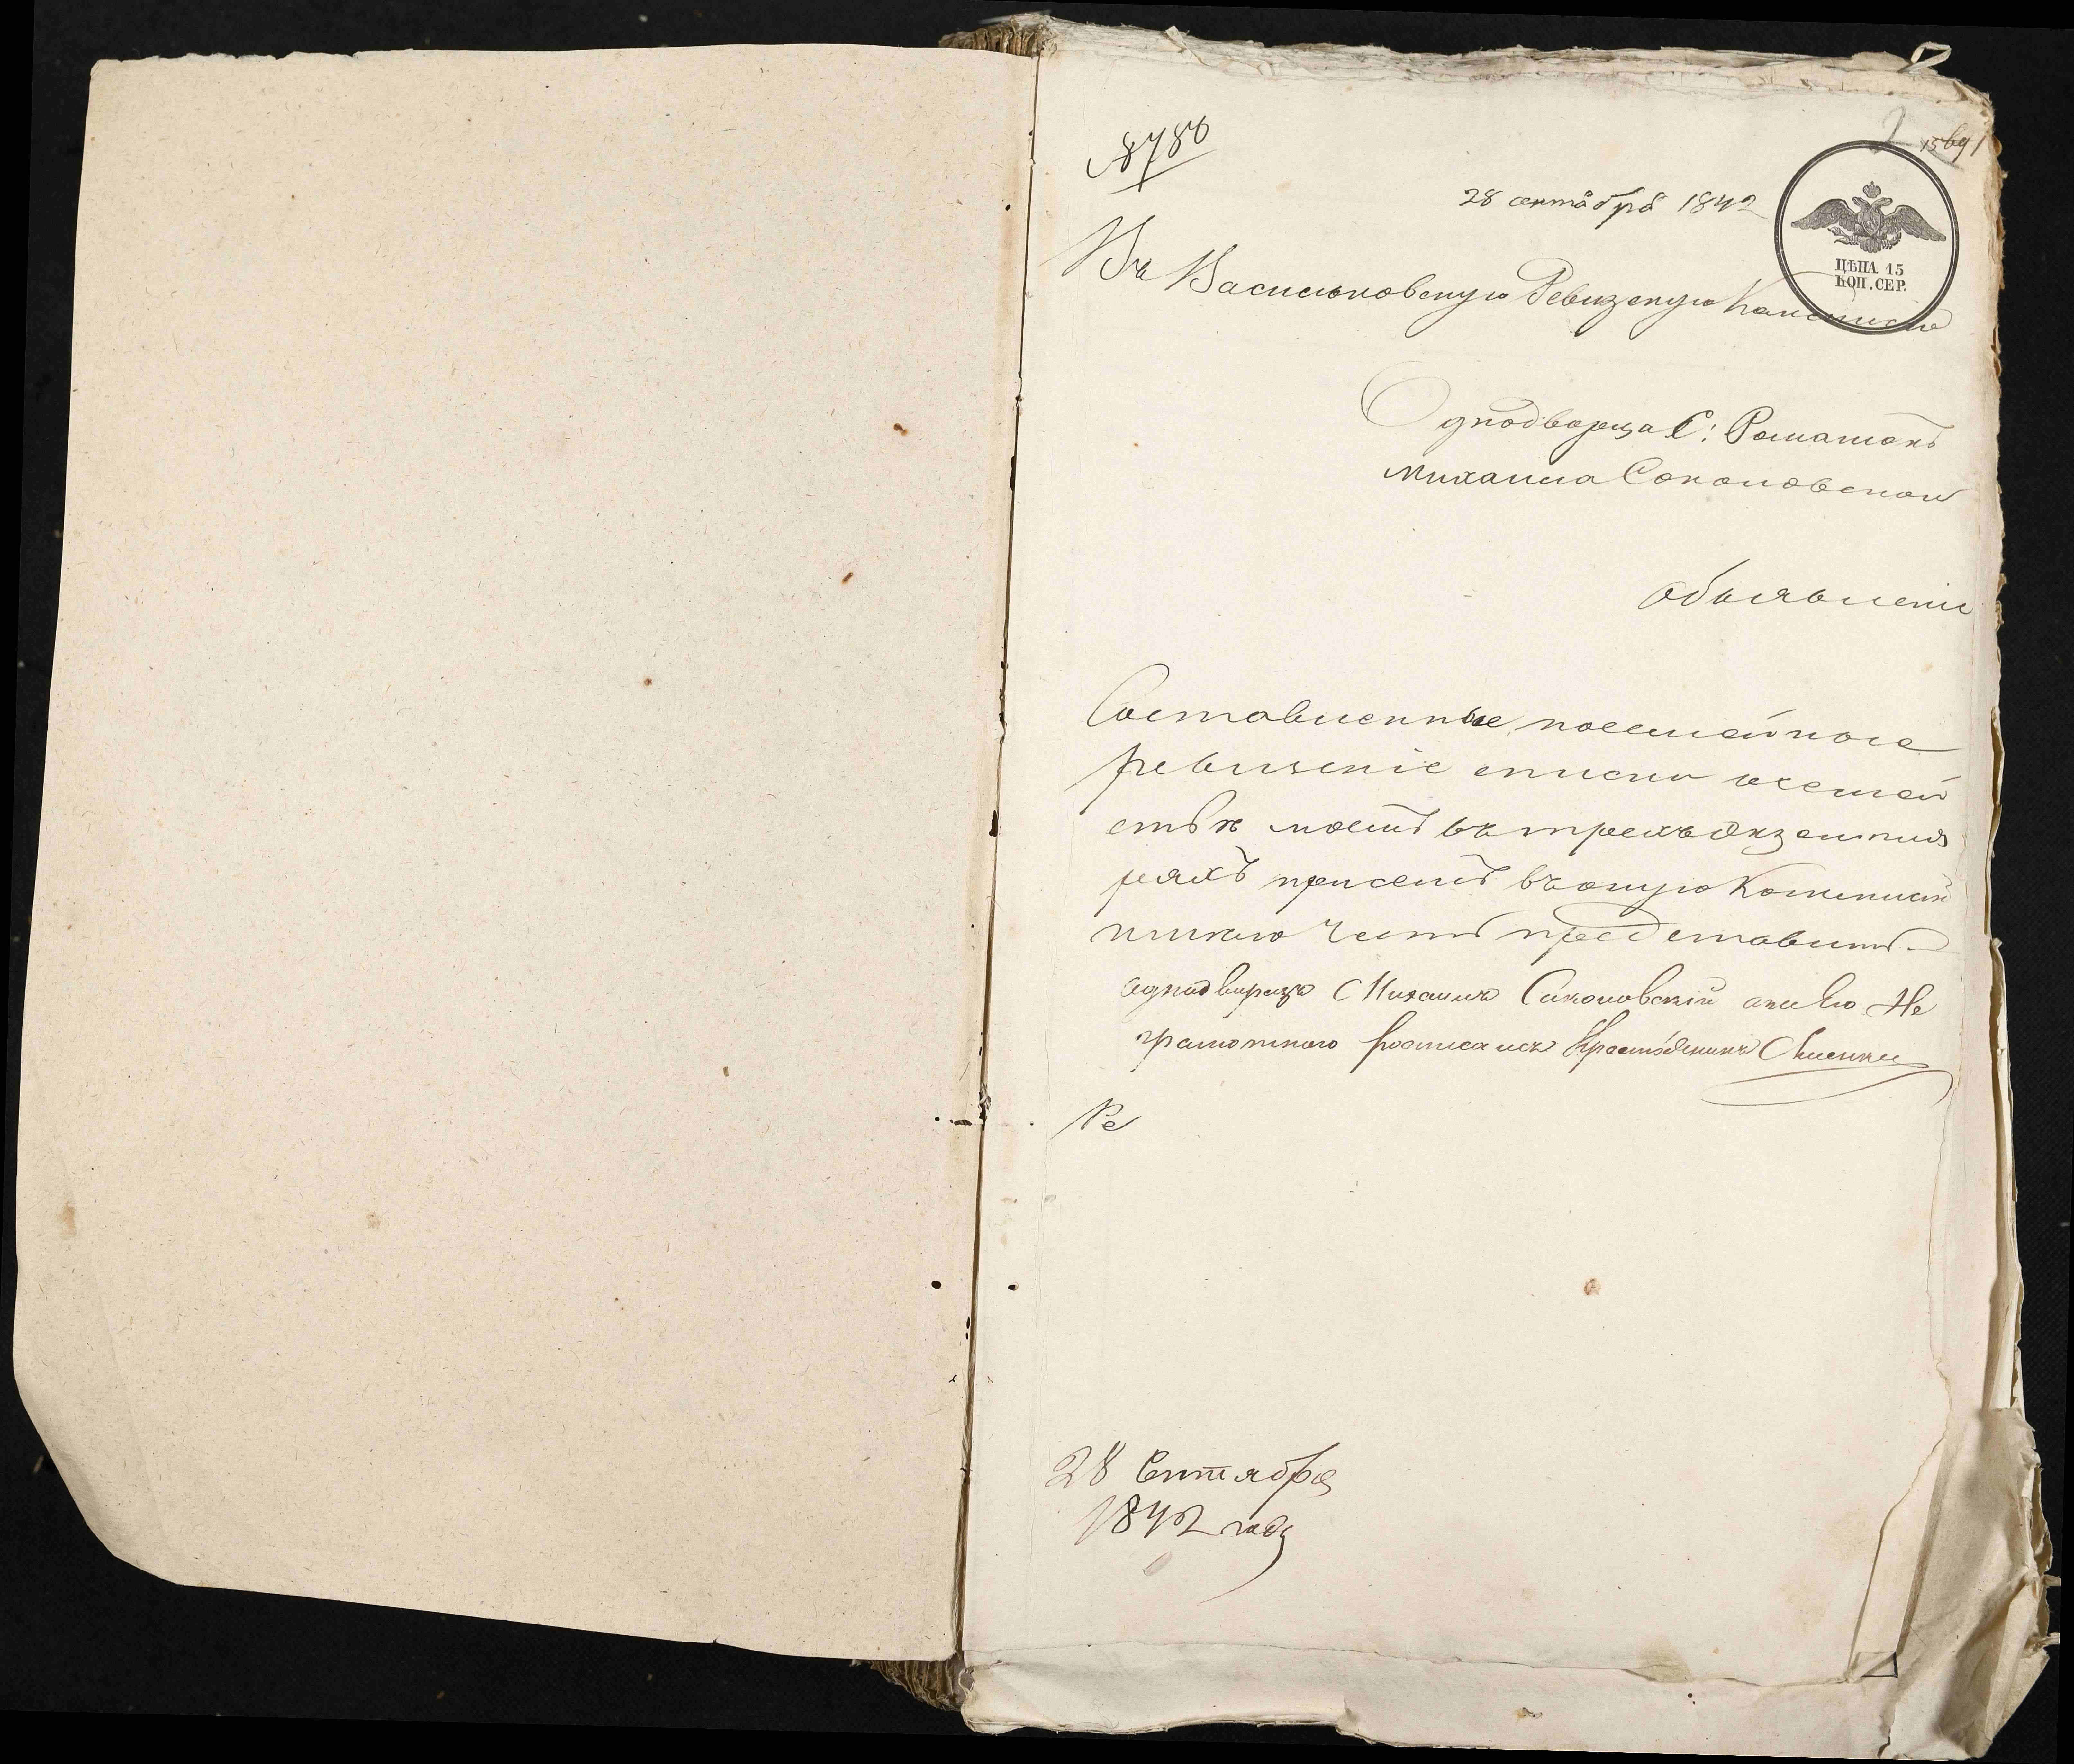 № 8786
15691
28 сентября 1842
ЦѢНА 15
КОП. СЕР.
Въ Васильковскую Ревизскую Комисию
Однодворца С: Ромашокъ
Михаила Соколовскои
Объявление
Составленные посемейные
ревизскіе списки о семей
ствѣ моемъ въ трехъ экземпля
ряхъ присемъ въ оную Комисию
имѣю честь представить.
однодворецъ Михаилъ Соколовскій а на его Не
грамотного росписался
Ре
28 Сентября
1842 года